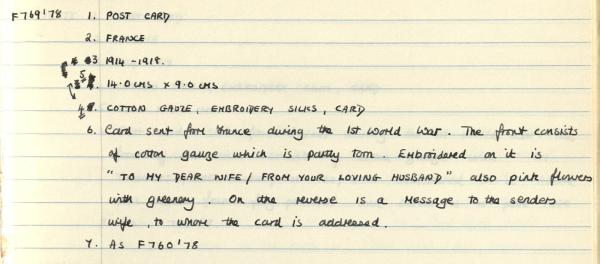 F769'78 1. POST CARD
2. FRANCE
3 1914-1918.
5. 14.0 CMS x 9.0 CMS
4. COTTON GAUZE, EMBROIDERY SILKS, CARD
6. Card sent from France during the 1st World War. The front consists
of cotton gauze which is partly torn. Embroidered on it is
"TO MY DEAR WIFE / FROM YOUR LOVING HUSBAND" also pink flowers
with greenery. On the reverse is a message to the senders
wife, to whom the card is addressed.
7. AS F760'78